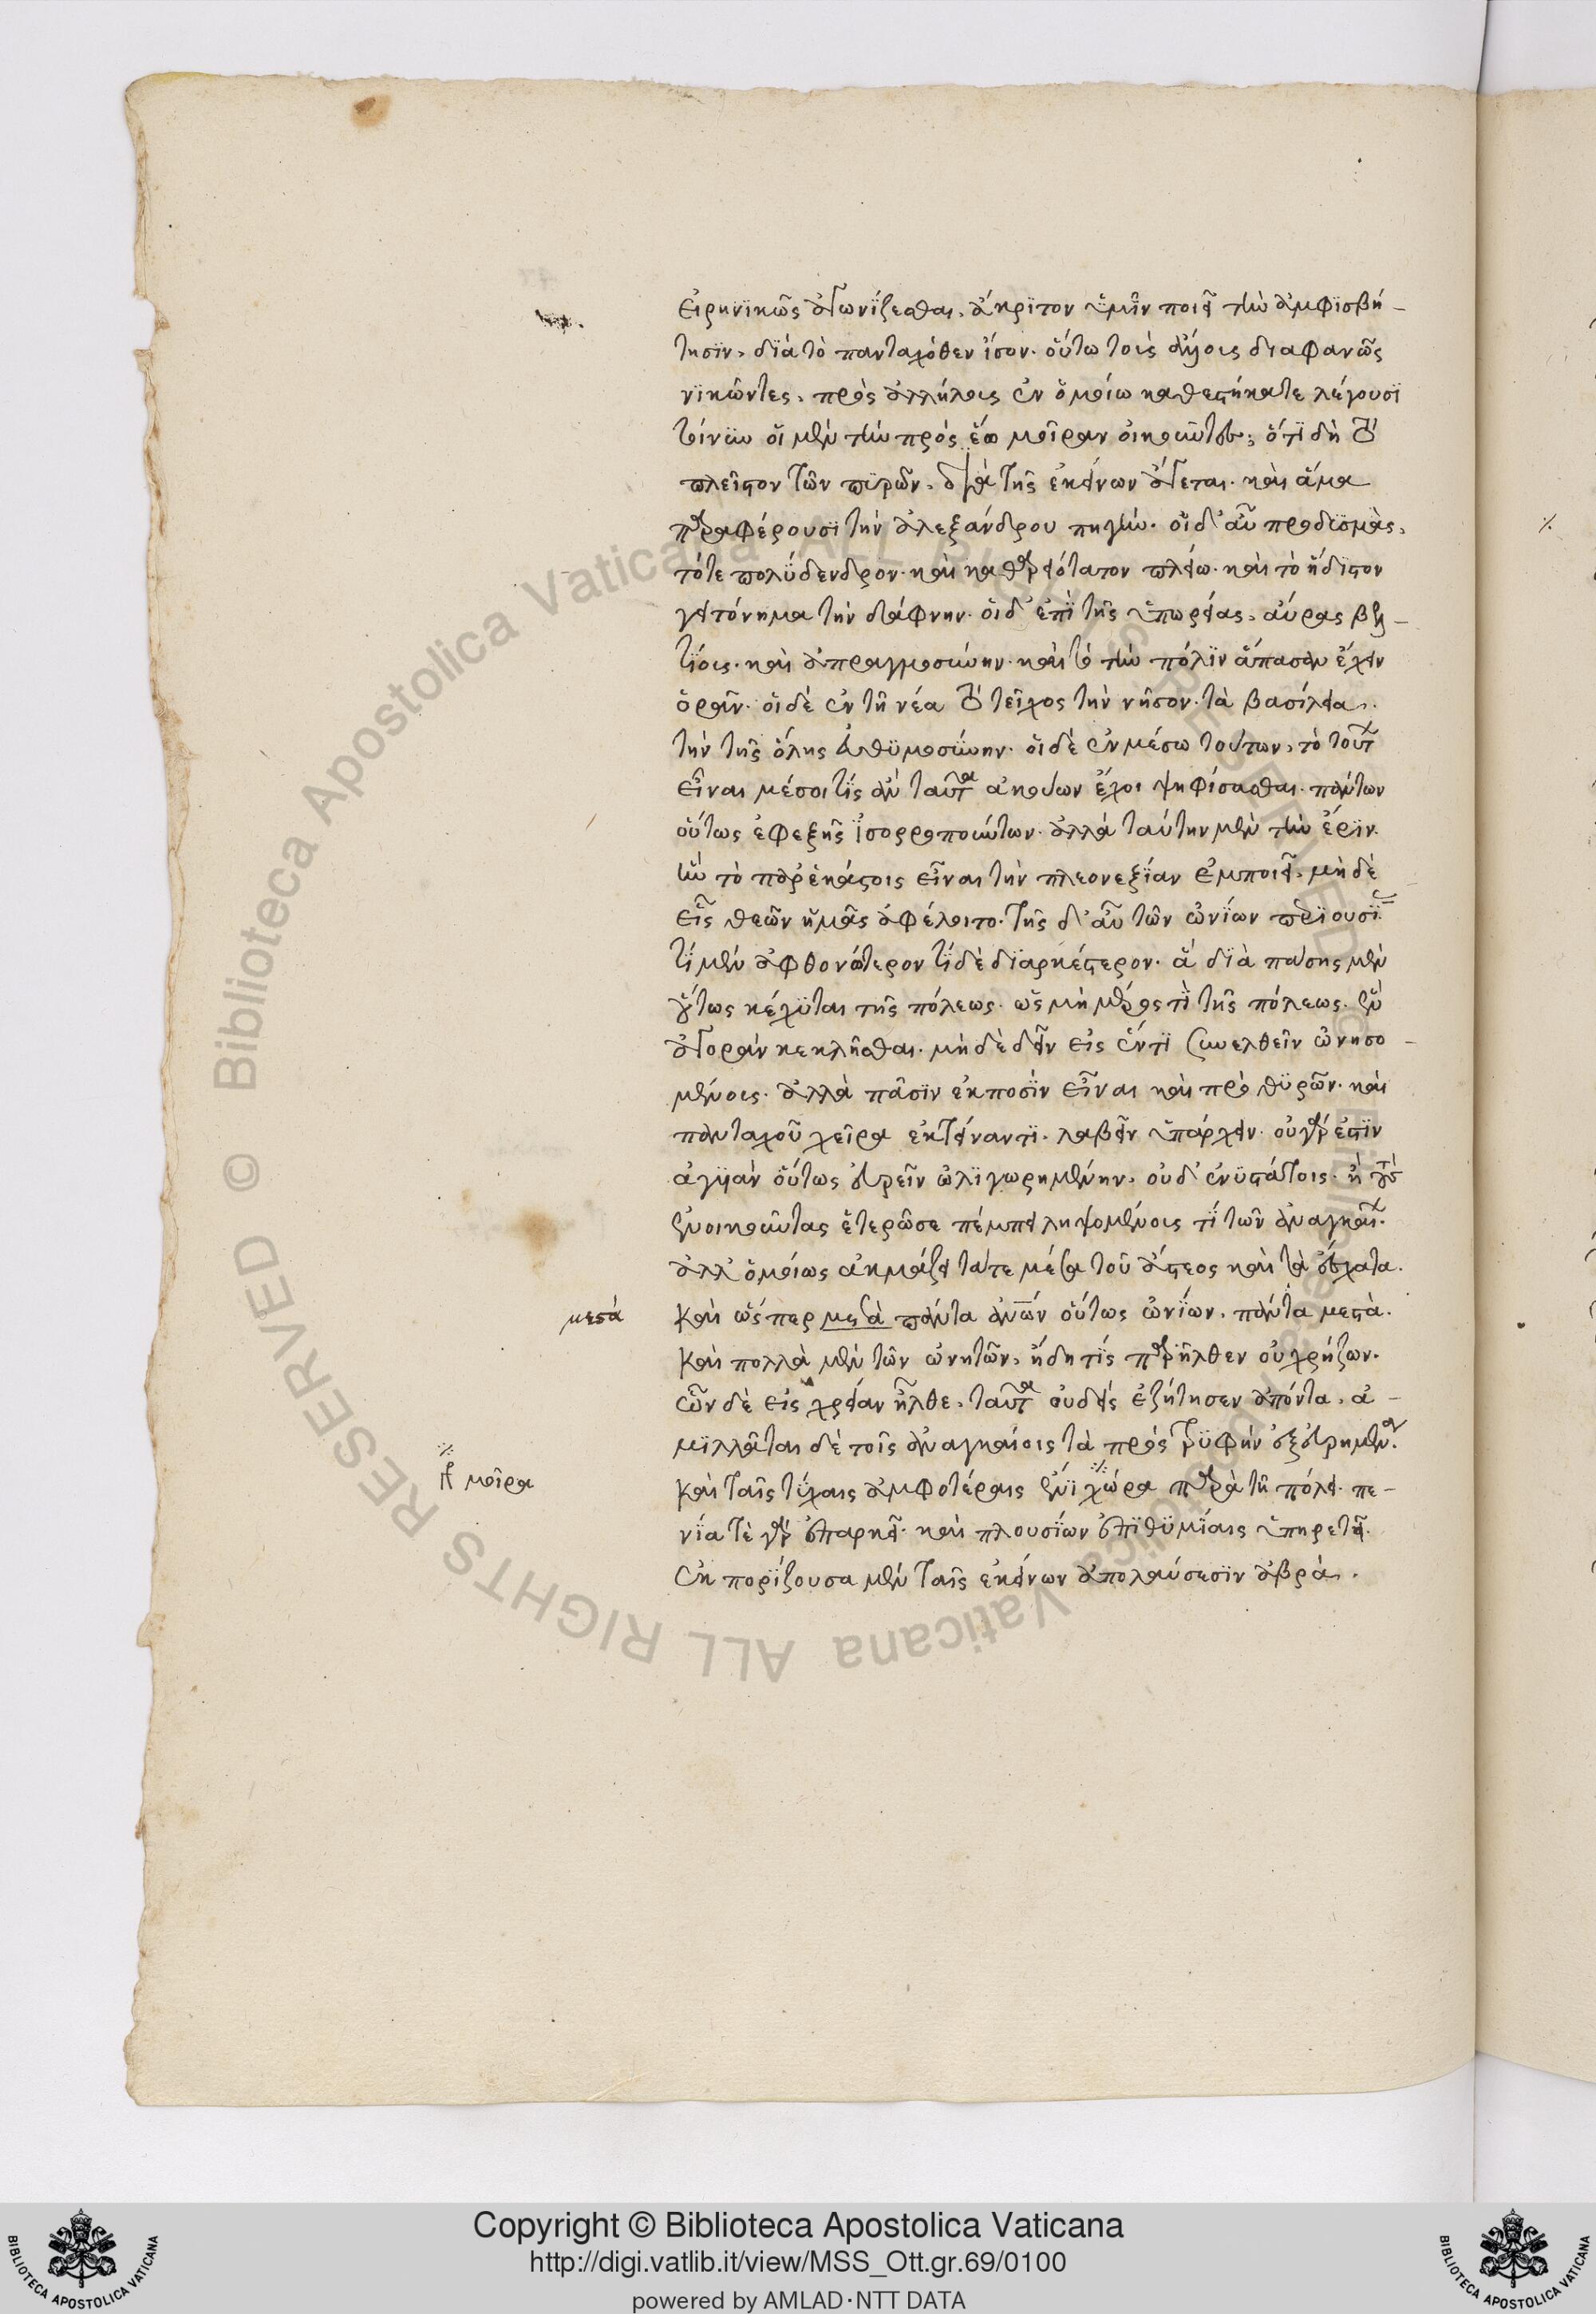 εἰρηνϊκῶς ἀγωνΐζεσθαι. ἄκρϊτον ὑμῖν ποιεῖ τὴν ἀμφϊσβή-
τησϊν, δϊὰ τὸ πανταχόθεν ἴσον. οὕτω τοὶς ἄλλοις διαφανῶς
νϊκῶντες, πρὸς ἀλλήλοις ἐν ὁμοίω καθεστήκατε λέγουσϊ
τοίνϋν οἱ μὲν τὴν πρὸς ἕω μοῖραν οἰκοῦντες, ὅτϊ δὴ τὸ
πλεῖστον τῶν πϋρῶν, διὰ τῆς ἐκείνων ἄγεται. καὶ ἅμα
παραφέρουσϊ τὴν ἀλεξάνδρου πηγήν. οἱ δ' αὖ πρὸ δϋσμὰς,
τότε πολΰδενδρον. καὶ καθαρειότατον πλείω. καὶ τὸ ἥδιστον
γειτόνημα τὴν δάφνην. οἱ δ' ἐπῒ τῆς ὑπωρείας, αὔρας βελ-
τΐοις. καὶ ἀπραγμοσύνην. καὶ τὸ τὴν πόλϊν ἅπασαν ἔχειν
ὁρᾶν. οἱ δὲ ἐν τῆ νέα τὸ τεῖχος τὴν νῆσον. τὰ βασίλεια.
τὴν τῆς ὅλης εὐθϋμοσΰνην. οἱ δὲ ἐν μέσω τούτων, τὸ τούτων
εἶναι μέσοι τΐς ἂν ταῦτα ἀκούων ἔχοι ψηφίσασθαι. πάντων
οὕτως ἐφεξῆς ἰσορροπούντων. ἀλλὰ ταύτην μὲν τὴν ἔρϊν.
ἣν τὸ παρ' ἑκάστοις εἶναι τὴν πλεονεξΐαν ἐμποιεῖ, μὴ δὲ
εἷς θεῶν ἡμᾶς ἀφέλοιτο. τῆς δ' αὖ τῶν ὠνΐων περϊουσΐας
τΐ μὲν ἀφθονώτερον τΐ δὲ δϊαρκέστερον. ἃ δϊὰ πάσης μὲν
οὕτως κέχϋται τῆς πόλεως. ὡς μὴ μέρος τῒ τῆς πόλεως. ἓν
ἀγορὰν κεκλῆσθαι. μὴ δὲ δεῖν εἰς ἕν τϊ συνελθεῖν ὠνησο-
μένοις. ἀλλὰ πᾶσϊν ἐκ ποσῒν εἶναι καὶ πρὸ θϋρῶν. καὶ
πανταχοῦ χεῖρα ἐκτείναντϊ. λαβεῖν ὑπάρχειν. οὐ γὰρ ἔστϊν
ἀγυιὰν οὕτως εὑρεῖν ὠλϊγωρημένην. οὐδ' ἐν ὑστάτοις. ἣ τοὺς
ἐνοικοῦντας ἑτέρωσε πέμπει ληψομένοις τΐ τῶν ἀναγκαίων.
ἀλλ' ὁμοίως ἀκμάζει τάτε μέσα τοῦ ἄστεος καὶ τὰ ἔσχατα.
καὶ ὥσπερ μετὰ πάντα ἀνων οὕτως ὠνΐων, πάντα μεστὰ.
μεστά
καὶ πολλὰ μὲν τῶν ὠνητῶν, ἤδη τΐς παρῆλθεν οὐ χρήζων.
ὧν δὲ εἰς χρείαν ἦλθε, ταῦτα οὐδεὶς ἐζήτησεν ἀπόντα. ἁ-
μϊλλᾶται δὲ τοῖς ἀναγκαίοις τὰ πρὸς τρϋφὴν ἐξευρημένα.
καὶ ταῖς τΰχαις ἀμφοτέραις ἔνϊ χώρα παρὰ τῆ πόλει. πε-
ἢ μοῖρα
νΐα τὲ γὰρ ἐπαρκεῖ. καὶ πλουσΐων ἐπϊθϋμΐαις ὑπηρετεῖ.
ἐκπορΐζουσα μὲν ταῖς ἐκείνων ἀπολαύσεσϊν ἁβρὰ.
Copyright © Biblioteca Apostolica Vaticana
http://digi.vatlib.it/view/MSS_Ott.gr.69/0100
powered by AMLAD·NTT DATA
BIBLIOTECA APOSTOLICA VATICANA
BIBLIOTECA APOSTOLICA VATICANA
© Biblioteca Apostolica Vaticana ALL RIGHTS RESERVED
© Biblioteca Apostolica Vaticana ALL RIGHTS RESERVED